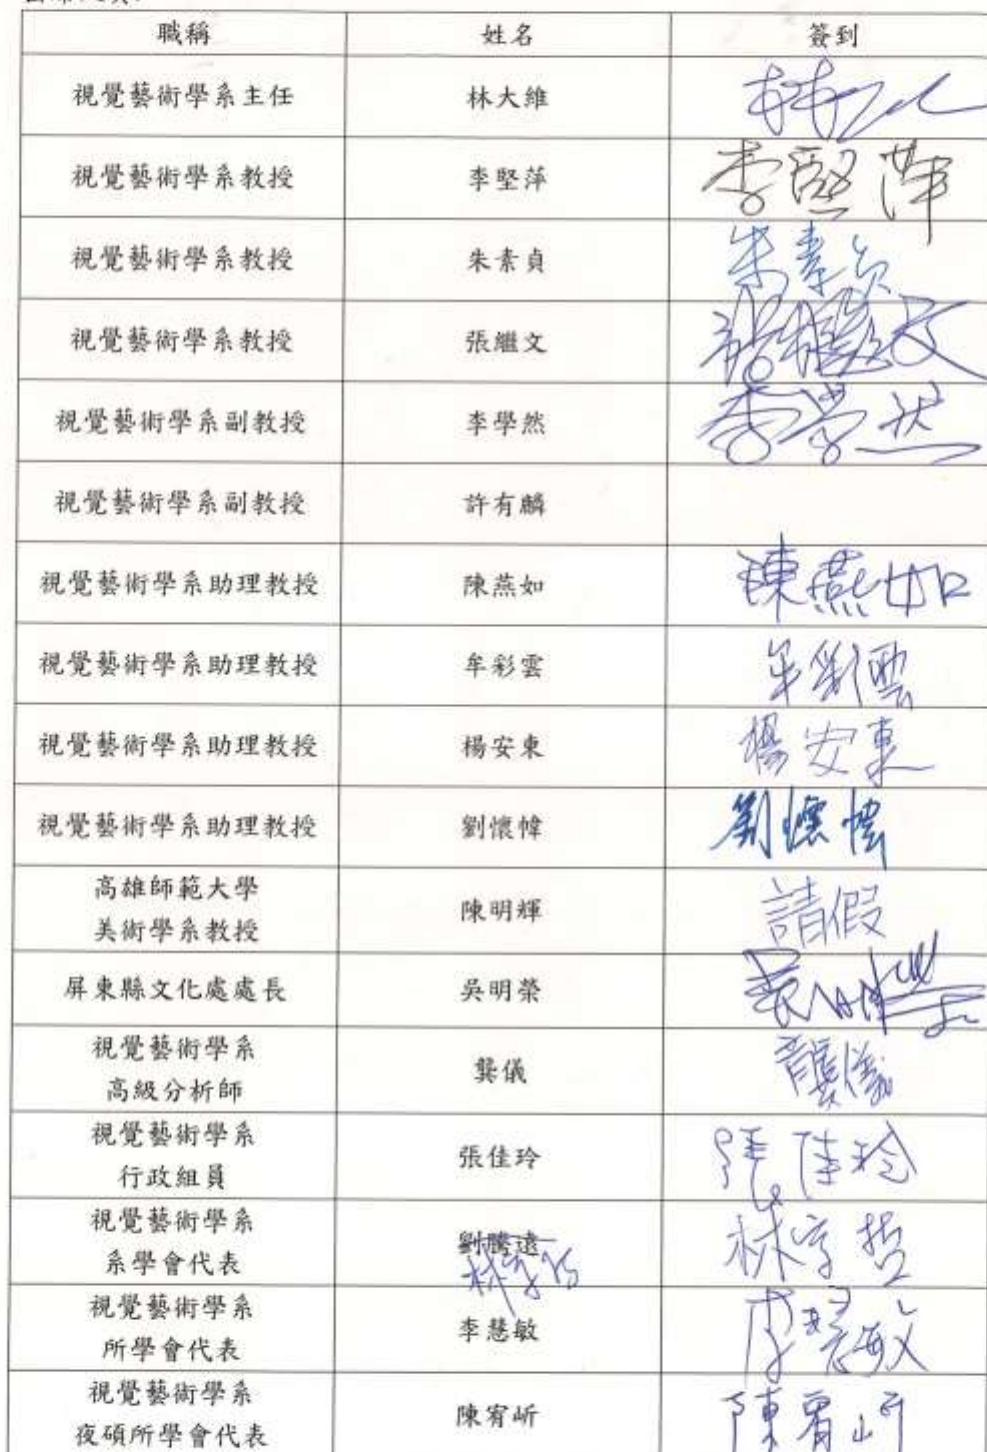 職稱 姓名 簽到
視覺藝術學系主任 林大維 林
視覺藝術學系教授 李堅萍 李堅萍
視覺藝術學系教授 朱素貞 朱素貞
視覺藝術學系教授 張繼文 張繼文
視覺藝術學系副教授 李學然 李學然
視覺藝術學系副教授 許有麟
視覺藝術學系助理教授 陳燕如 陳燕如
視覺藝術學系助理教授 牟彩雲 牟彩雲
視覺藝術學系助理教授 楊安東 楊安東
視覺藝術學系助理教授 劉懷幃 劉懷幃
高雄師範大學
美術學系教授 陳明輝 請假
屏東縣文化處處長 吳明榮
視覺藝術學系
高級分析師 龔儀 龔儀
視覺藝術學系
行政組員 張佳玲 張佳玲
視覺藝術學系
系學會代表 劉騰遠 林宇哲
視覺藝術學系
所學會代表 李慧敏 李慧敏
視覺藝術學系
夜碩所學會代表 陳宥岓 陳宥岓